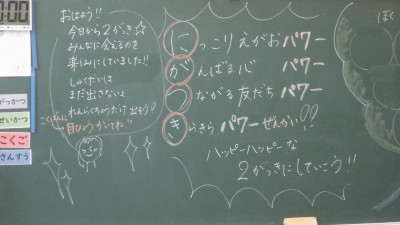 00
おはよう!!
今日から2がっき☆
みんなに会えるのを
楽しみにしていました!!
しゅくだいは
まだ出さないよ
れんらくちょうだけ出そう♡
にっこりえがおパワー
がんばる心 パワー
つながる友だち パワー
きらきらパワーぜんかい!!
ハッピーハッピーな
2がっきにしていこう!!
ぼく
がっかつ
せいかつ
こくご
さんすう